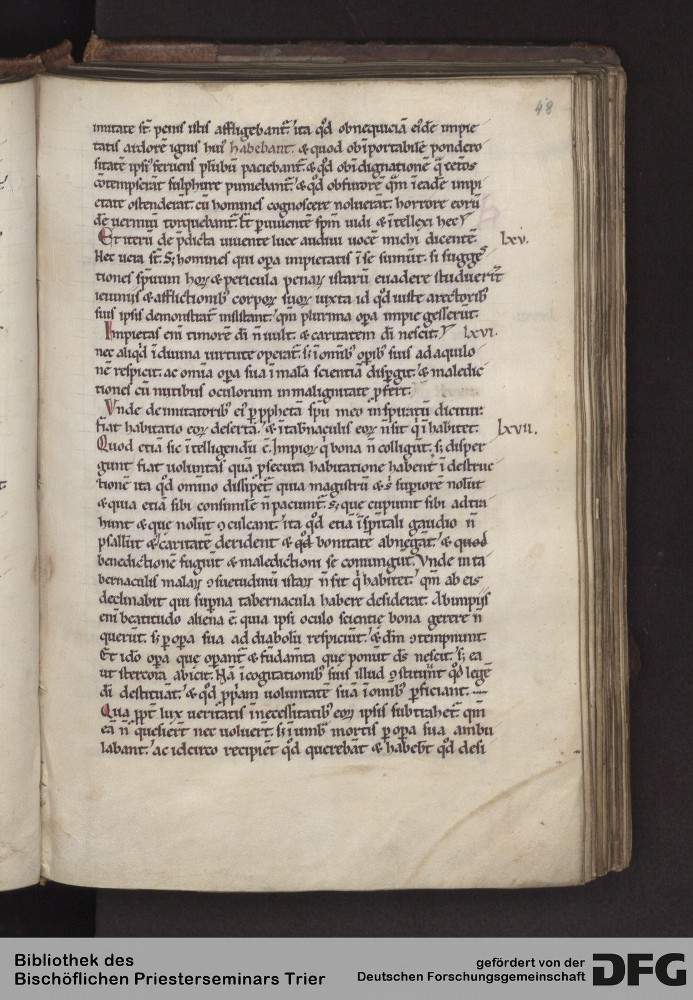 48
mitate st̄. penis istis affligebant̄. ita qd̄ ob nequiciā ei'dē impie
tatis ardorē ignis hui' habebant. & quod obīportabilē pondero
sitatē ipsi' feruens plūbū paciebant̄. & qd̄ ob īdignationē q̄ cetos
cōtempserāt sulphure puniebant̄. & qd̄ ob furorē quē ī eadē impi
etate ostenderāt. cū homines cognoscere noluerāt. horrore eorū
dē uermiū torquebant̄. Et ꝑ uiuentē spm̄ uidi & ītellexi hec.
Et iterū de p̄dicta uiuente luce audiui uocē michi dicentē. lxv.
Hec uera st̄. S; homines qui oꝑa impietatis ī se sumūt. si sugges
tiones spirituum hoꝝ & pericula penaꝝ istarū euadere studuerīt
ieiuniis & afflictionib' corpoꝝ suoꝝ iuxta id qd̄ iuste a rectorib'
suis ipsis demonstrat̄ insistant. qm̄ plurima oꝑa impie gesserūt.
Impietas eni timorē dī n̄ uult. & caritatem dī nescit. lxvi.
nec aliqd̄ ī diuina uirtute operat̄. s; ī omīb' opib' suis ad aquilo
nē respicit. ac omīa oꝑa sua ī mala scientiā disꝑgit. & maledic
tiones cū nutibus oculorum in malignitate ꝓfert.
Vnde de imitatorib' ei' ꝑ ꝓphetā spū meo inspiratū dicitur.
Fiat habitatio eoꝝ deserta. & ī tab̄naculis eoꝝ n̄ sit q̄ ī habitet. lxvii.
Quod etiā sic ītelligendū ē. Impioꝝ q̄ bona n̄ colligūt. s; disper
gunt fiat uoluntas quā ꝓsecuta habitatione habent ī destruc
tionē ita qd̄ omīno dissipet̄ quia magistrū & s' superiorē nolūt
& quia etiā sibi consimilē n̄ paciunt̄. s; que cupiunt sibi adtra
hunt & que nolūt ꝯculcant. ita qd̄ etiā ī spīitali gaudio n̄
psallūt & caritatē derident & qd̄ bonitatē abnegāt. & quod
benedictionē fugiūt & maledictioni se coniungūt. Vnde in ta
bernaculis malaꝝ ꝯsuetudinū istaꝝ n̄ sit q̄ habitet. qm̄ ab eis
declinabit qui suꝑna tabernacula habere desiderat. Ab impiis
eni beatitudo aliena ē. quia ipsi oculo scientie bona gerere n̄
querūt. s; ꝑ oꝑa sua ad diabolū respiciūt. & dm̄ ꝯtempnunt.
Et idō oꝑa que oꝑant̄ & fūdamīta que ponūt ds̄ nescit. s; ea
ut stercora abicit. Nā ī cogitationib' suis illud ꝯstitūt qd̄ legē
dī destituāt. & qd̄ ꝓpriam uoluntatē suā ī omīb' ꝑficiant.
Qua ꝓpt̄ lux ueritatis ī necessitatib' eoꝝ ipsis subtrahet̄. qm̄
eā n̄ quesiert̄ nec uoluert̄. s; ī umb' mortis ꝑ oꝑa sua ambu
labant. ac idcirco recipiēt qd̄ querebāt & habeb̄t qd̄ desi
Bibliothek des
Bischöflichen Priesterseminars Trier
gefördert von der
Deutschen Forschungsgemeinschaft
DFG